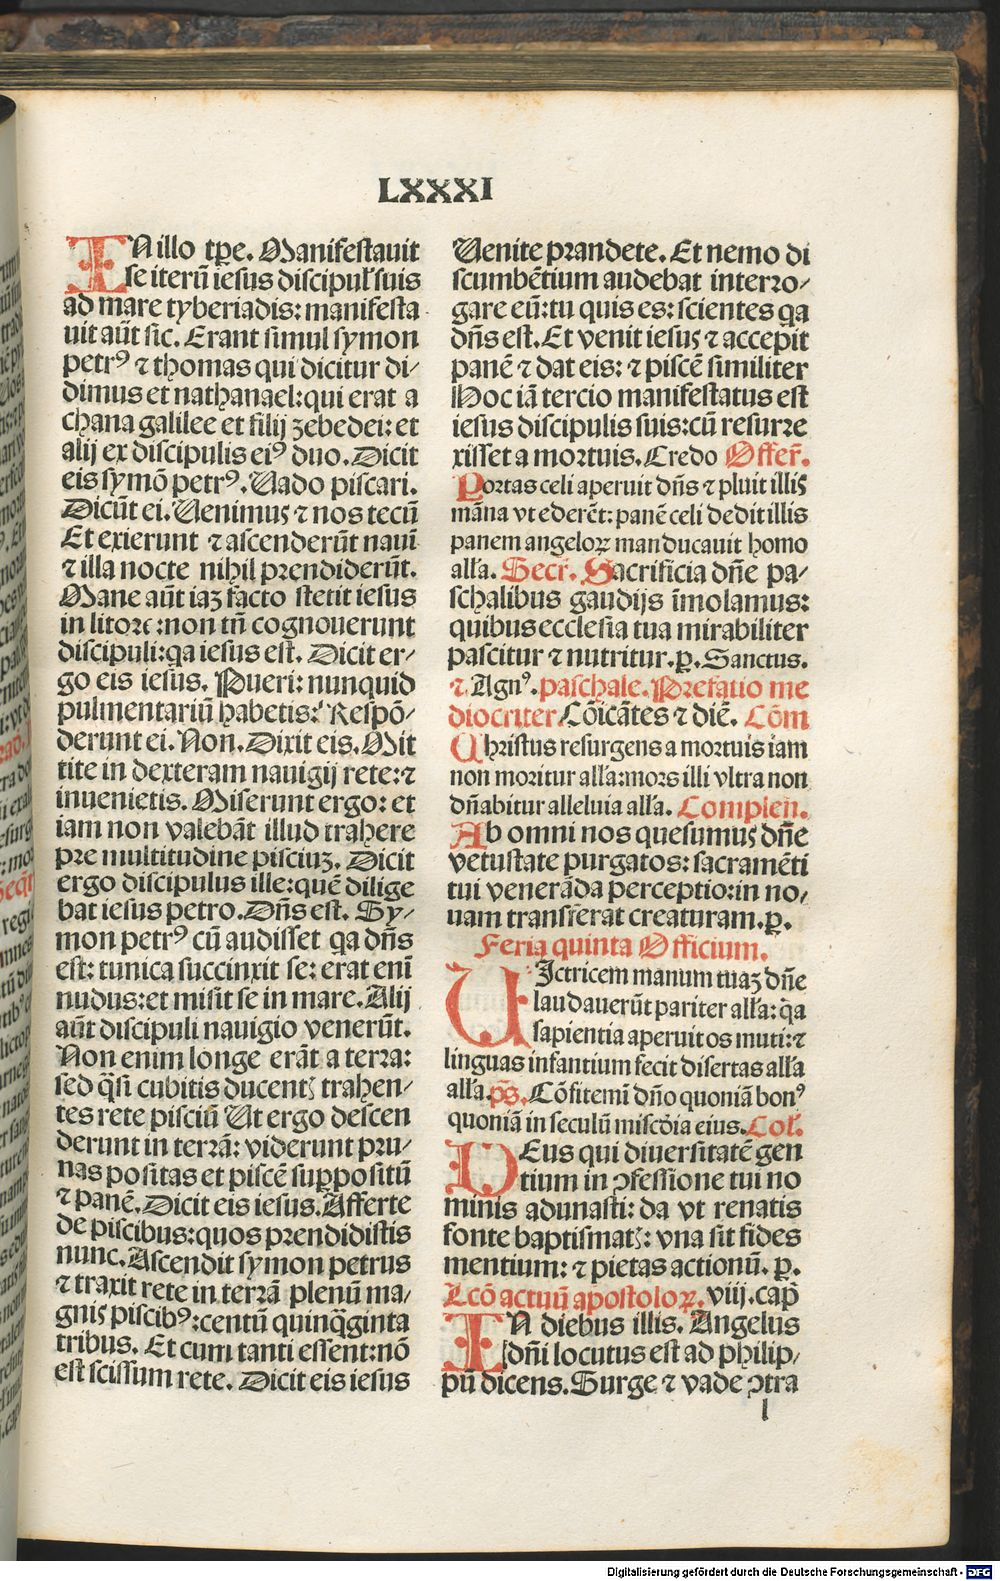 LXXXI
IN illo tp̄e. Manifestauit
se iterū iesus discipul' suis
ad mare tyberiadis: manifesta
uit aūt sic. Erant simul symon
petrꝰ ⁊ thomas qui dicitur di/
dimus et nathanael: qui erat a
chana galilee et filij zebedei: et
alij ex discipulis eiꝰ duo. Dicit
eis symō petrꝰ. Uado piscari.
Dicūt ei. Uenimus ⁊ nos tecū
Et exierunt ⁊ ascenderūt nauī
⁊ illa nocte nihil prendiderūt.
Mane aūt iaꝫ facto stetit iesus
in litore: non tn̄ cognouerunt
discipuli: qa iesus est. Dicit er/
go eis iesus. Pueri: nunquid
pulmentariū habetis? Respō/
derunt ei. Non. Dixit eis. Mit
tite in dexteram nauigij rete: ⁊
inuenietis. Miserunt ergo: et
iam non valebāt illud trahere
pre multitudine pisciuꝫ. Dicit
ergo discipulus ille: quē dilige
bat iesus petro. Dn̄s est. Sy/
mon petrꝰ cū audisset qa dn̄s
est: tunica succinxit se: erat enī
nudus: et misit se in mare. Alij
aūt discipuli nauigio venerūt.
Non enim longe erāt a terra:
sed q̄si cubitis ducentꝭ trahen/
tes rete pisciū Ut ergo descen
derunt in terrā: viderunt pru/
nas positas et piscē suꝑpositū
⁊ panē. Dicit eis iesus. Afferte
de piscibus: quos prendidistis
nunc. Ascendit symon petrus
⁊ traxit rete in terrā plenū ma/
gnis piscibꝰ: centū quinq̄ginta
tribus. Et cum tanti essent: nō
est scissum rete. Dicit eis iesus
Uenite prandete. Et nemo di
scumbētium audebat interro/
gare eū: tu quis es: scientes qa
dn̄s est. Et venit iesus ⁊ accepit
panē ⁊ dat eis: ⁊ piscē similiter
Hoc iā tercio manifestatus est
iesus discipulis suis: cū resurre
xisset a mortuis. Credo Offer̄.
Portas celi aperuit dn̄s ⁊ pluit illis
māna vt ederēt: panē celi dedit illis
panem angeloꝝ manducauit homo
all'a. Secr̄. Sacrificia dn̄e pa/
schalibus gaudijs īmolamus:
quibus ecclesia tua mirabiliter
pascitur ⁊ nutritur. ꝑ. Sanctus.
⁊. Agnꝰ. paschale. Prefatio me
diocriter Cōicātes ⁊ diē. Cōm
Christus resurgens a mortuis iam
non moritur all'a: mors illi vltra non
dn̄abitur alleluia all'a. Complen.
Ab omni nos quesumus dn̄e
vetustate purgatos: sacramēti
tui venerāda perceptio: in no/
uam transferat creaturam. ꝑ.
Feria quinta Officium.
UIctricem manum tuaꝫ dn̄e
laudauerūt pariter all'a: q̄a
sapientia aperuit os muti: ⁊
linguas infantium fecit disertas all'a
all'a. ps̄. Cōfitemī dn̄o quoniā bonꝰ
quoniā in seculū misc̄dia eius. Col'.
DEus qui diuersitatē gen
tium in ꝯfessione tui no
minis adunasti: da vt renatis
fonte baptismatꝭ: vna sit fides
mentium: ⁊ pietas actionū. ꝑ.
Lcō actuū apostoloꝝ. viij. cap̄
IN diebus illis. Angelus
dn̄i locutus est ad philip/
pū dicens. Surge ⁊ vade ꝯtra
l
Digitalisierung gefördert durch die Deutsche Forschungsgemeinschaft - DFG